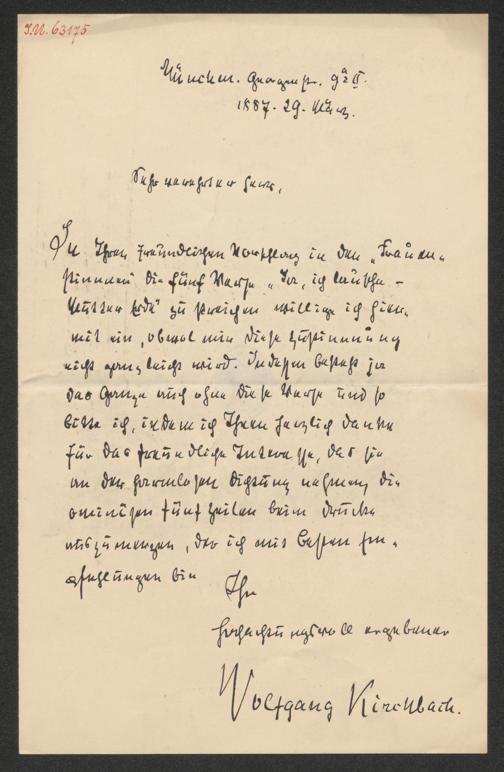 I.N. 63175
München. Georgenstr. 9a/2 II.
1887. 29. März.
Sehr verehrter Herr,
In Ihren freundlichen Vorschlag in den „Frauen-
stimmen die fünf Verse „Ja, ich
zu streichen willige ich hier-
mit ein, obwol mir diese Zustimmung
nicht ganz leicht wird. Indessen besteht ja
das Ganze auch ohne diese Verse und so
bitte ich, indem ich Ihnen herzlich danke
für das freundliche Interesse, das sie
an der harmlosen Dichtung nehmen, die
ominösen fünf Zeilen beim Drucke
auszumerzen, der ich mit besten Em-
pfehlungen bin
Ihr
hochachtungsvoll ergebener
Wolfgang Kirchbach.